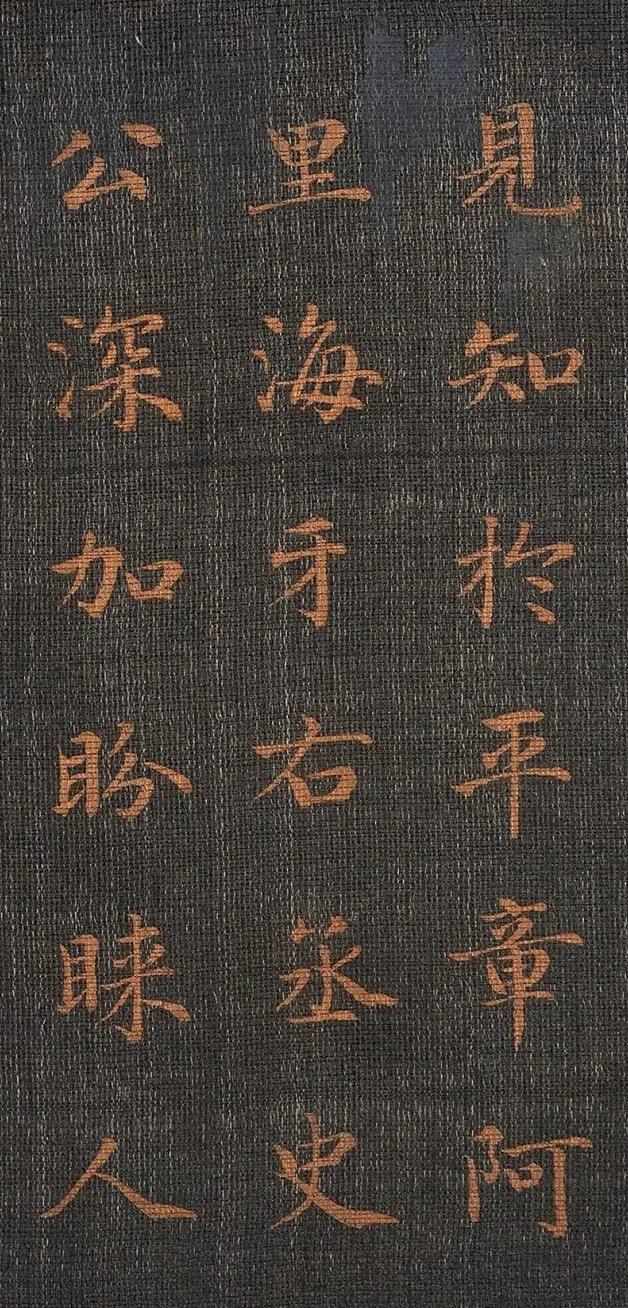 見知於平章阿
里海牙右丞史
公深加盼睞人